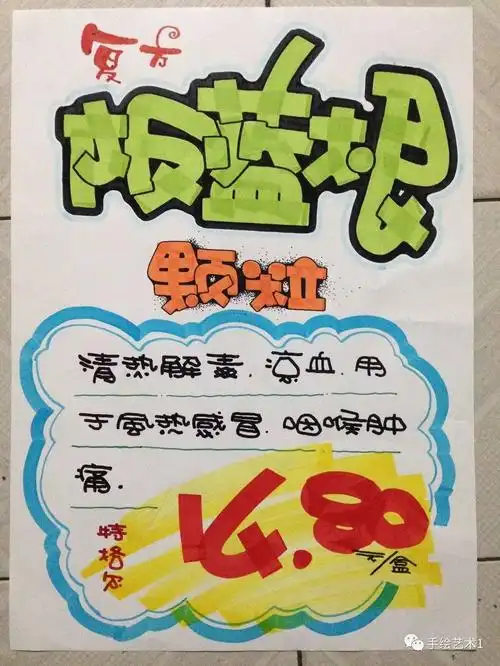 复方
板蓝根
颗粒
清热解毒.凉血.用
于風热感冒.咽喉肿
痛.
特格尔
元/盒
手绘艺术1